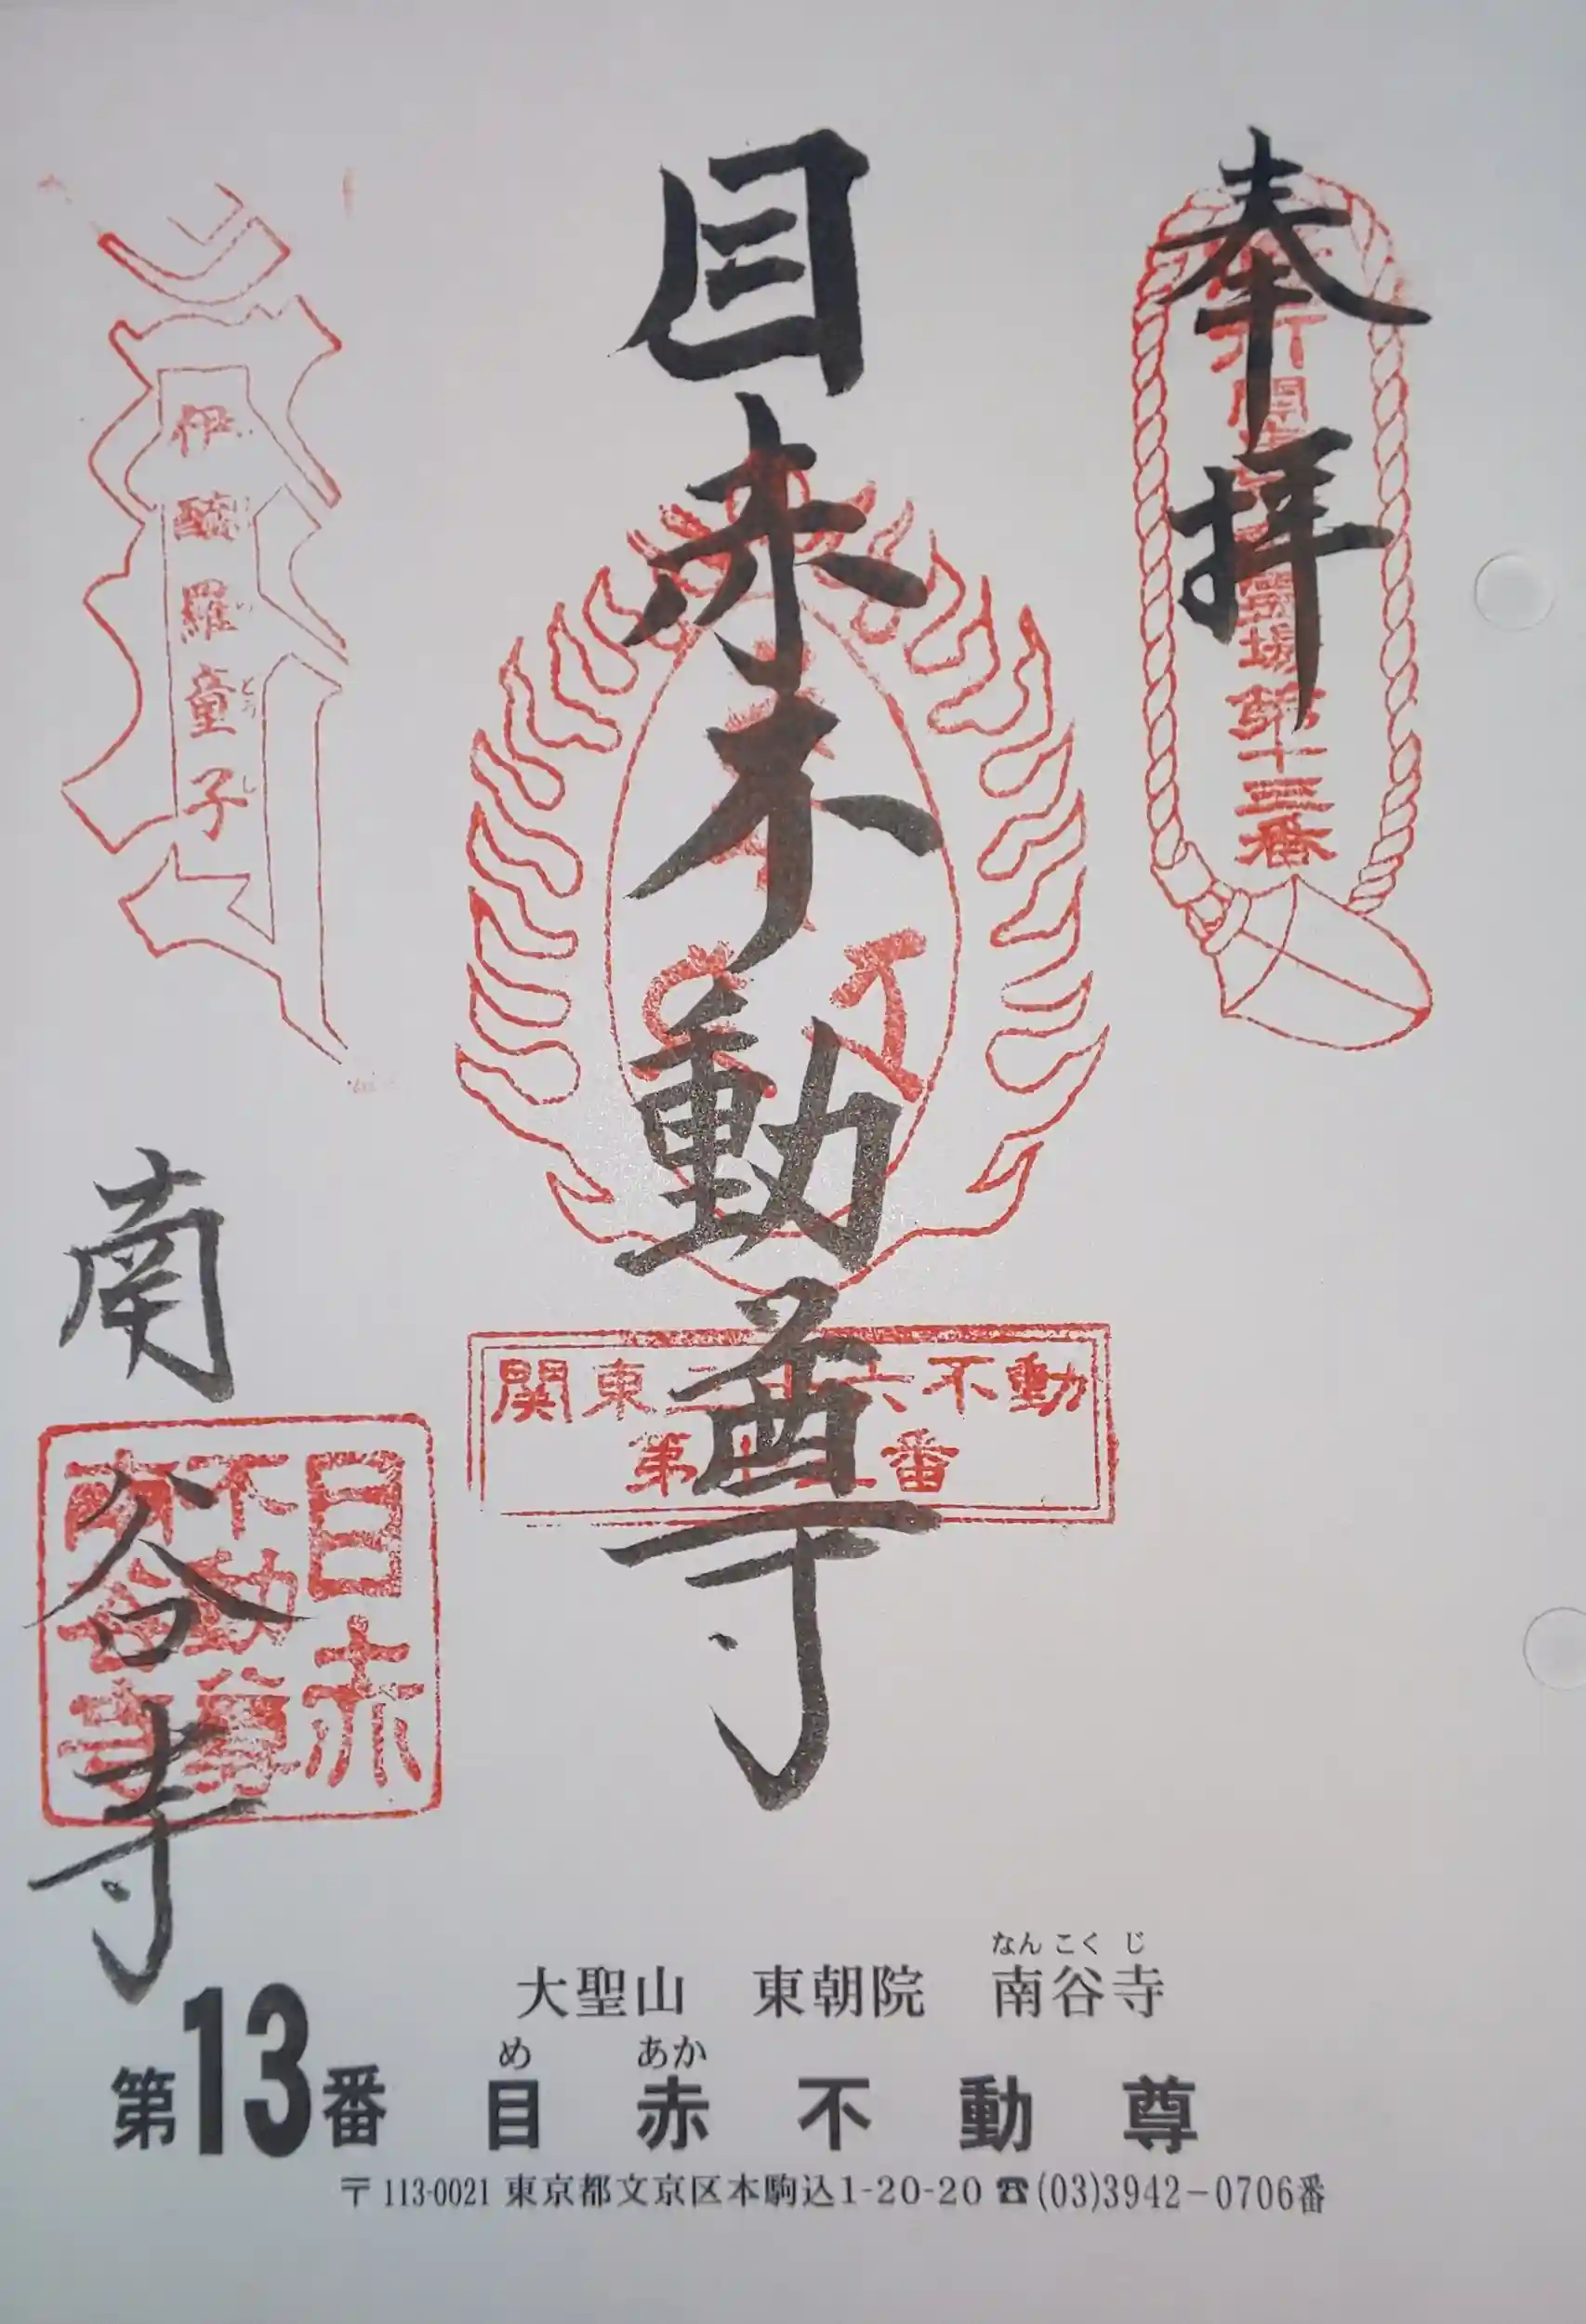 奉拝
霊場第十三番
目赤不動尊
関東三十六不動
第十三番
伊醯羅童子
どう
し
南谷寺
目赤
不動尊
南谷寺
なんこくじ
大聖山 東朝院 南谷寺
め あか
第13番 目赤不動尊
〒113-0021 東京都文京区本駒込1-20-20 ☎(03)3942-0706番